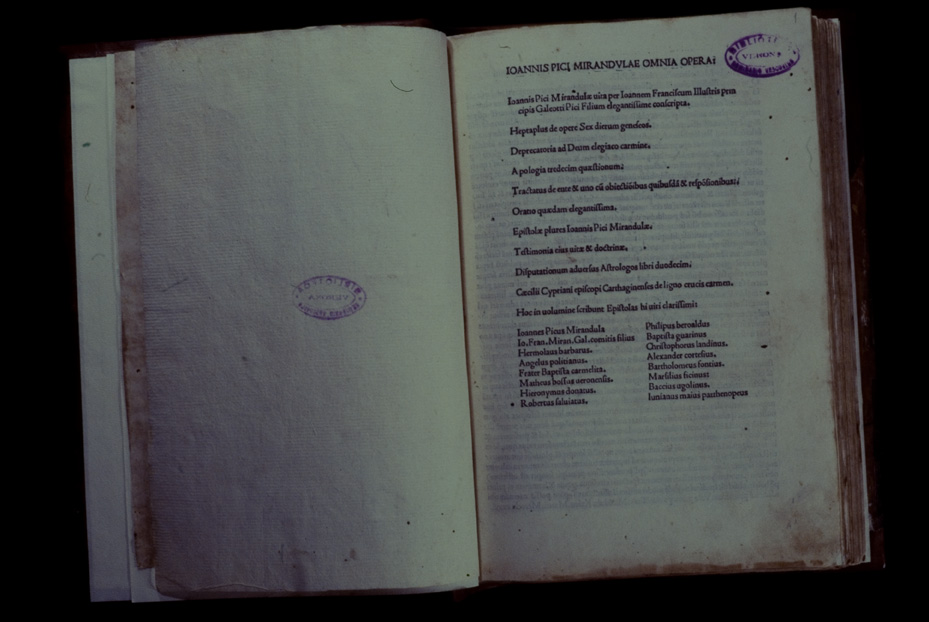 IOANNIS PICI MIRANDVLAE OMNIA OPERA:
Ioannis Pici Mirandulæ uita per Ioannem Franciscum Illustris prin
cipis Galeotti Pici Filium elegantissime conscripta.
Heptaplus de opere Sex dierum geneseos.
Deprecatoria ad Deum elegiaco carmine.
Apologia tredecim quæstionum:
Tractatus de ente & uno cū obiectiōibus quibusdā & respōsionibus:
Oratio quædam elegantissima.
Epistolæ plures Ioannis Pici Mirandulæ.
Testimonia eius uitæ & doctrinæ.
Disputationum aduersus Astrologos libri duodecim:
Cæcilii Cypriani episcopi Carthaginensis de ligno crucis carmen.
Hoc in uolumine scribunt Epistolas hi uiri clarissimi:
Ioannes Picus Mirandula
Io. Fran. Miran. Gal. comitis filius
Hermolaus barbarus.
Angelus politianus.
Frater Baptista carmelita.
Matheus bossus ueronensis.
Hieronymus donatus.
Robertus saluiatus.
Philipus beroaldus
Baptista guarinus
Christophorus landinus.
Alexander cortesius.
Bartholomeus fontius.
Marsilius ficinus:
Baccius ugolinus.
Iunianus maius parthenopeus
VERONA